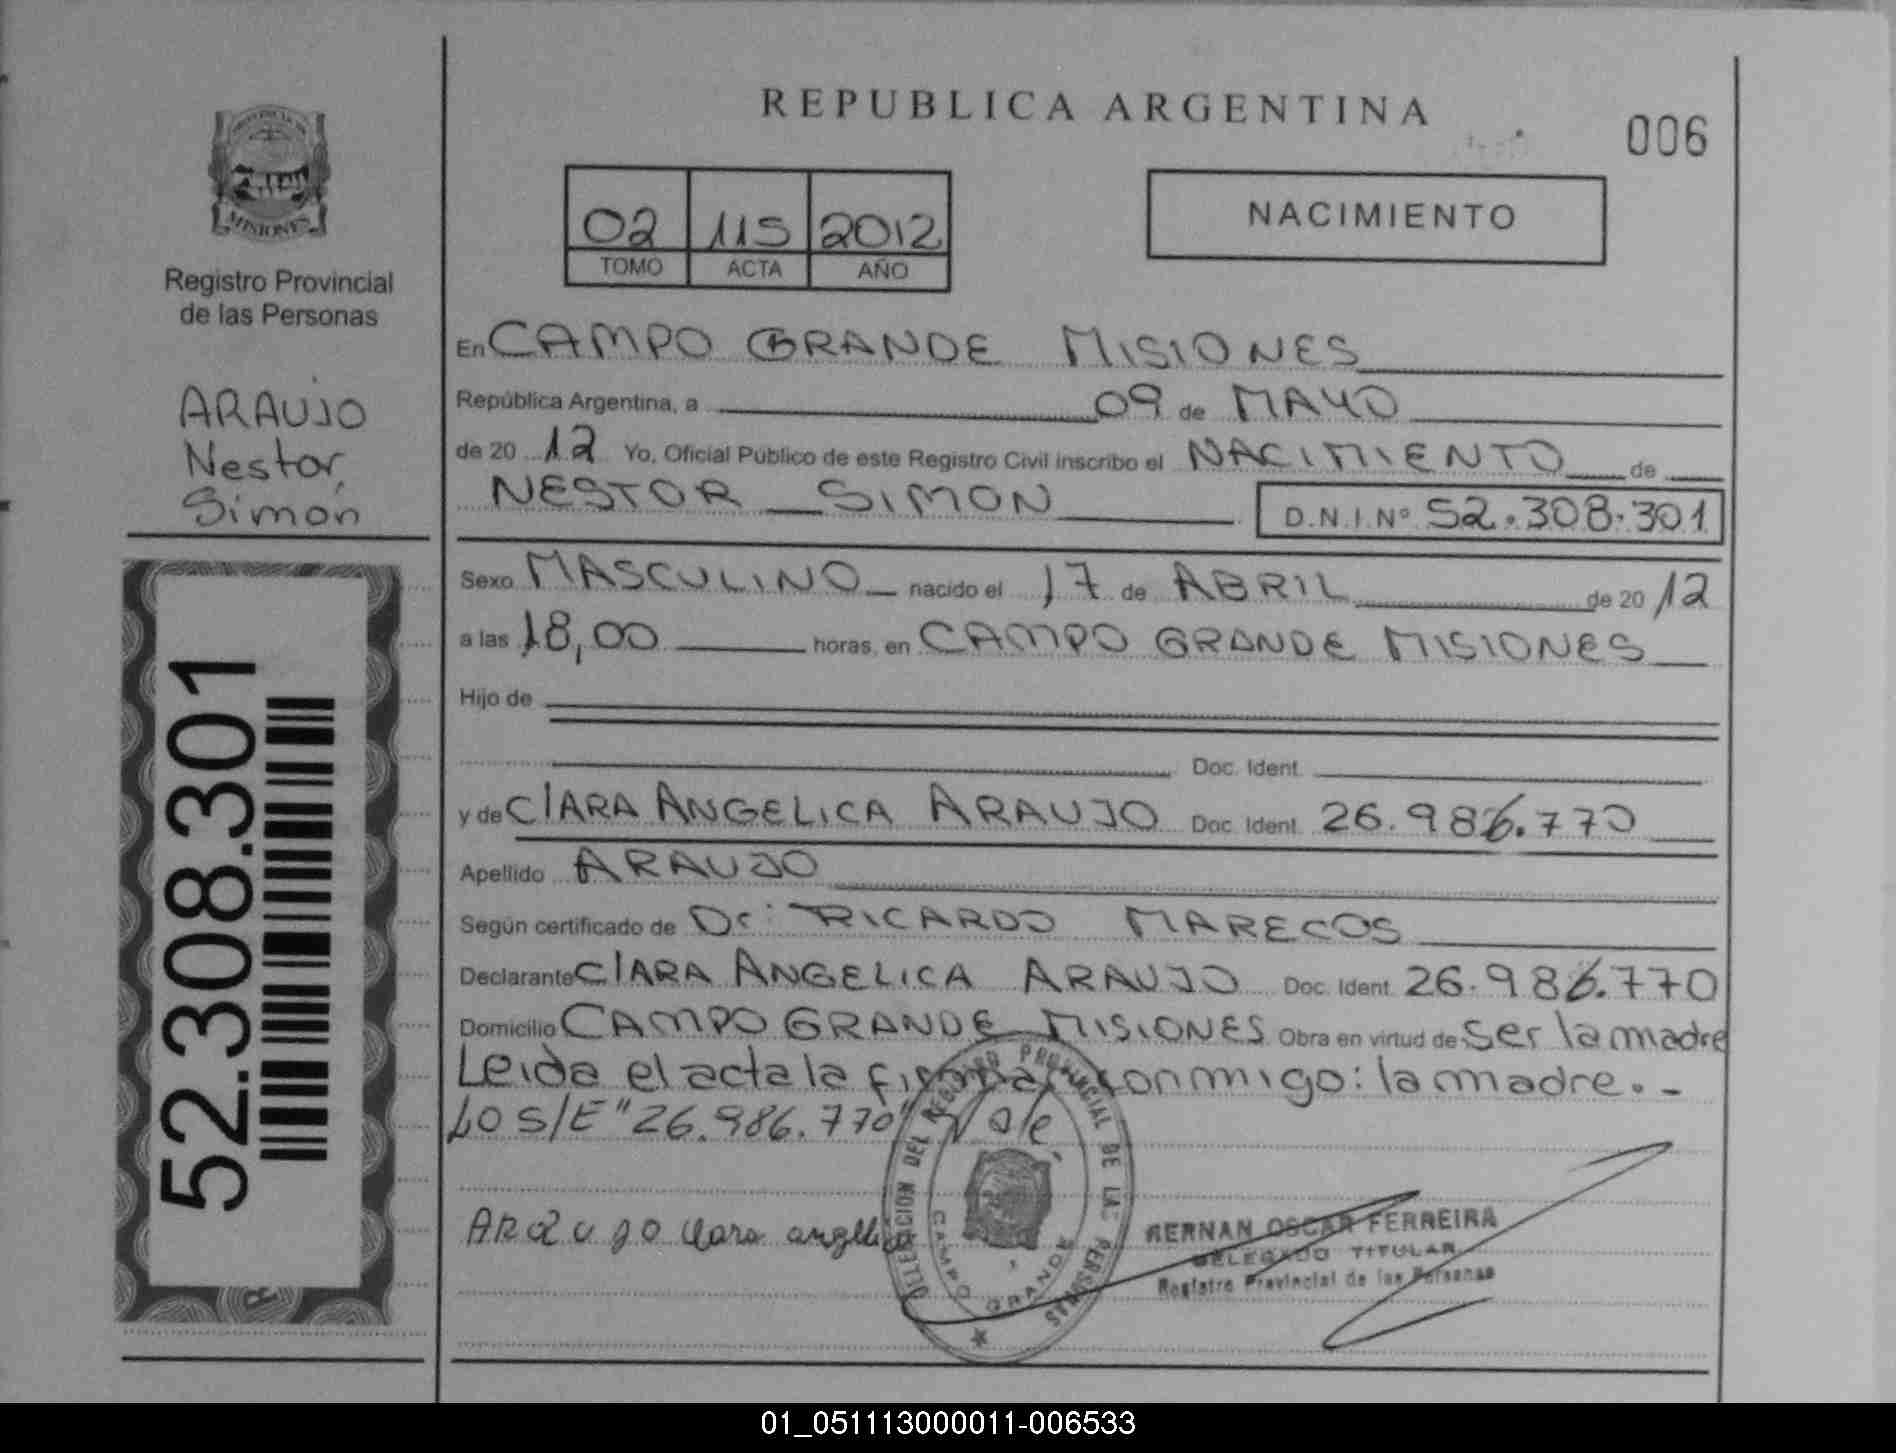 REPUBLICA ARGENTINA
006
MISIONES
Registro Provincial
de las Personas
ARAUJO
Nestor,
Simón
52.308.301
02 115 2012
TOMO ACTA AÑO
NACIMIENTO
En CAMPO GRANDE MISIONES
República Argentina, a 09 de MAYO
de 20 12 Yo, Oficial Público de este Registro Civil inscribo el NACIMIENTO de
NESTOR SIMON D.N.I.Nº 52.308.301
Sexo MASCULINO nacido el 17 de ABRIL de 20 12
a las 18,00 horas, en CAMPO GRANDE MISIONES
Hijo de
Doc. Ident.
y de ClARA ANGELICA ARAUJO Doc. Ident. 26.986.770
Apellido ARAUJO
Según certificado de Dr: RICARDO MARECOS
Declarante ClARA ANGELICA ARAUJO Doc. Ident. 26.986.770
Domicilio CAMPO GRANDE MISIONES Obra en virtud de Ser la madre
Leida el acta la firma conmigo: la madre.-
LO S/E "26.986.770" Vale
DELEGACION DEL REGISTRO PROVINCIAL DE LAS PERSONAS
CAMPO GRANDE
ARAUJO Clara angelica
HERNAN OSCAR FERREIRA
DELEGADO TITULAR
Registro Provincial de las Personas
01_051113000011-006533